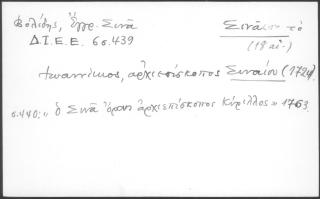 Βολίδης, Ἔγγρ. Σινᾶ
Δ.Ι.Ε.Ε. 6 σ. 439
Σινᾶ τὸ
(18 αἰ.)
Ἰωαννίκιος, ἀρχιεπίσκοπος Σιναίου (1724)
σ. 440: «ὁ Σινᾶ ὄρους ἀρχιεπίσκοπος Κύριλλος» 1763